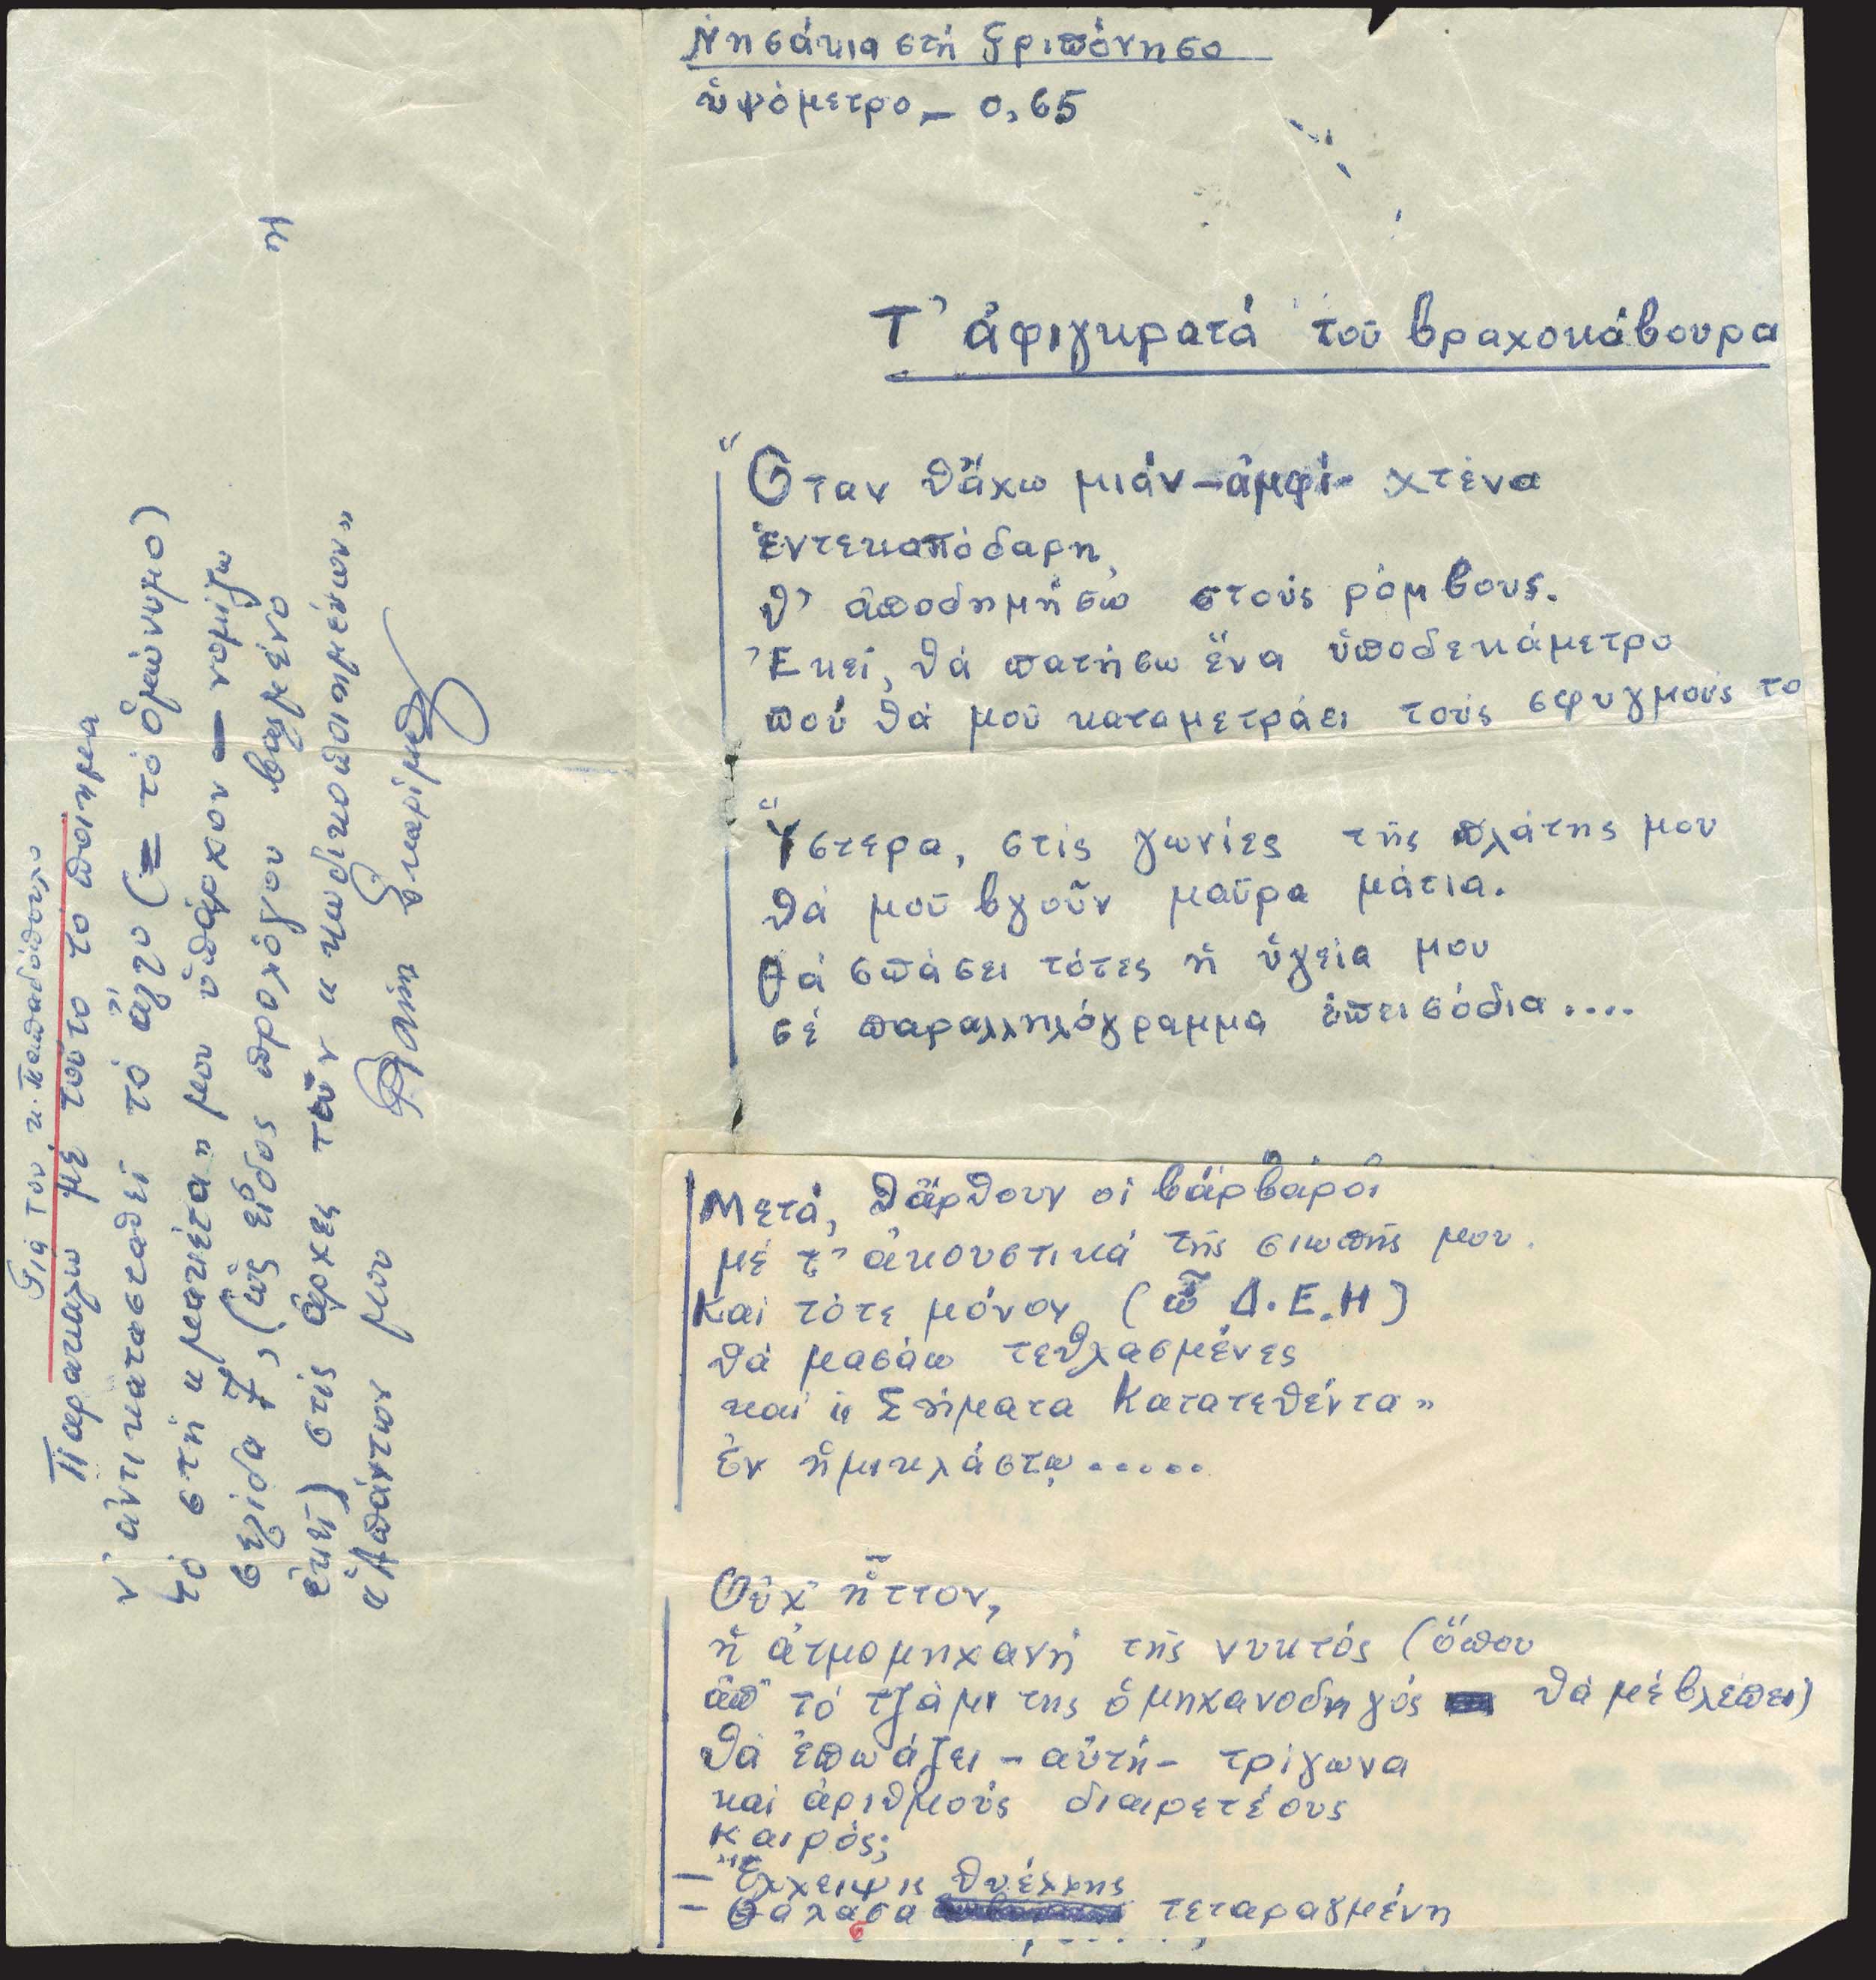 Νησάκια στή Γριπόνησο
ὑψόμετρο – 0,65
Τ' ἀφιγκρατά τοῦ βραχοκάβουρα
Ὅταν θἄχω μιάν –ἀμφί– χτένα
ἑντεκαπόδαρη,
θ' ἀποδημήσω στούς ρόμβους.
Ἐκεῖ, θά πατήσω ἕνα ὑποδεκάμετρο
πού θά μοῦ καταμετράει τούς σφυγμούς το
Ὕστερα, στίς γωνίες τῆς πλάτης μου
θά μοῦ βγοῦν μαῦρα μάτια.
θά σπάσει τότες ἡ ὑγεία μου
σέ παραλληλόγραμμα ἐπεισόδια....
Μετά, θἄρθουν οἱ βάρβαροι
μέ τ' ἀκουστικά τῆς σιωπῆς μου.
Καί τότε μόνον (ὦ Δ.Ε.Η)
θά μασάω τεθλασμένες
καί «Σήματα Κατατεθέντα»
ἐν ἡμικλάστῳ.....
Οὐχ' ἧττον,
ἡ ἀτμομηχανή τῆς νυκτός (ὅπου
ἀπ' τό τζάμι της ὁ μηχανοδηγός θά μέ βλέπει)
θά ἐπωάζει –αὐτή– τρίγωνα
καί ἀριθμούς διαιρετέους
Καιρός;
– Ἔλλειψις θυέλλης
– Θάλασα τεταραγμένη
σ
Γιά τον κ. Παπαδόπουλο
Παρακαλῶ μέ τοῦτο τό ποίημα
ν' ἀντικατασταθεῖ τό ἄλλο (= τό ὁμώνυμο)
τό στή «ματιέτα» μου ὑπάρχον – νομίζω
σελίδα 7, (ὡς εἶδος προλόγου βαλμένο
ἐκεῖ) στίς ἀρχές τῶν «κωδικοποιημένων»
«Ἁπάντων μου
Γιάννη Σκαρίμπα